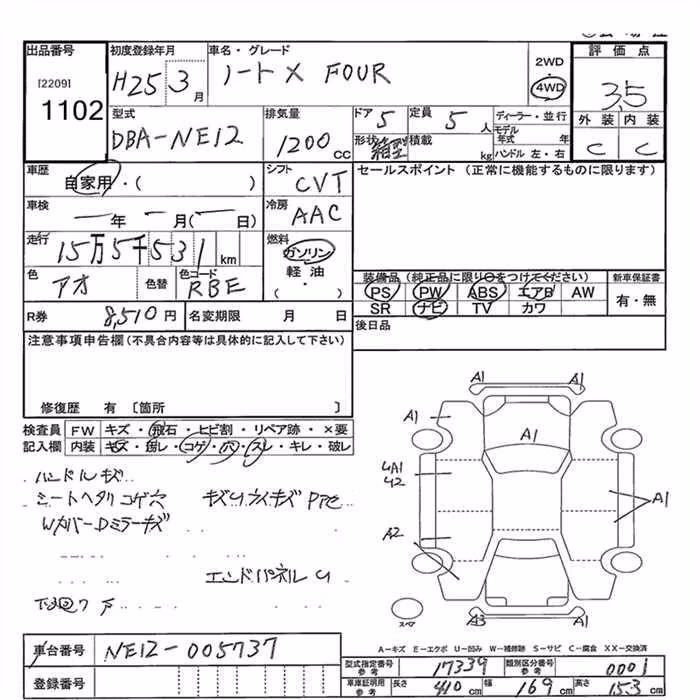 出品番号 初度登録年月 車名・グレード 2WD 評価点
[2209] H25 3月 ノート X FOUR 4WD 3.5
1102 外装 内装
型式 排気量 ドア 5 定員 5人 ディーラー・並行
DBA-NE12 1200cc 形状 箱型 積載 kg モデル年式 年 C C
ハンドル 左・右
車歴 シフト セールスポイント (正常に機能するものに限ります)
自家用・( ) CVT
車検 冷房
年 月( 日) AAC
走行 燃料
15万5千531km ガソリン
色 色替 色コード 軽油 装備品(純正品に限り○をつけてください) 新車保証書
アオ RBE ・( ) PS PW ABS エアB AW 有・無
SR ナビ TV カワ
R券 8,510円 名変期限 月 日 後日品
注意事項申告欄(不具合内容等は具体的に記入して下さい)
修復歴 有〔箇所 〕
検査員 FW キズ・飛石・ヒビ割・リペア跡・×要
記入欄 内装 キズ・汚レ・コゲ・穴・スレ・キレ・破レ
ハンドルキズ
シートヘタリ コゲ穴 キズUライキズ
WカバーDミラーキズ
エンドパネルU
A1 A1
A1
A1
4A1
42
A1
A2
A3 A1
スペア
A-キズ E-エクボ U-凹み W-補修跡 S-サビ C-腐食 XX-交換済
車台番号 NE12-005737
型式指定番号 参考 17339 類別区分番号 参考 0001
登録番号
車庫証明用 参考 長さ 410cm 幅 169cm 高さ 153cm